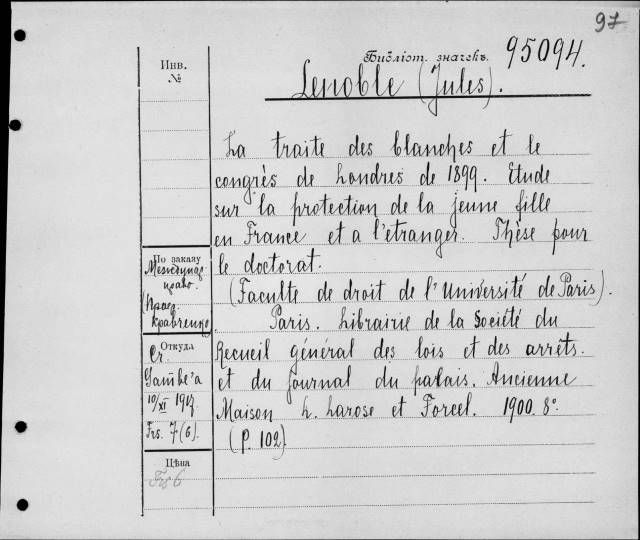 97
Библіот. значекъ. 95094.
Lenoble (Jules).
Инв.
№
La traite des blanches et le
congrès de Londres de 1899. Etude
sur la protection de la jeune fille
en France et a l'etranger. Thèse pour
le doctorat.
(Faculte de droit de l'Université de Paris).
Paris. Librairie de la Société du
Recueil général des lois et des arrêts.
et du journal du palais. Ancienne
Maison L. Larose et Forcel. 1900. 8°.
(P. 102)
По заказу
Междунар.
право.
Кравченко
Откуда
10/XI 1917.
Frs. 7 (6).
Цѣна
Frs 6